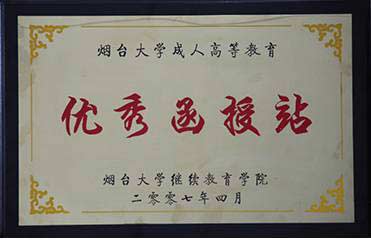 烟台大学成人高等教育
优秀函授站
烟台大学继续教育学院
二零零七年四月